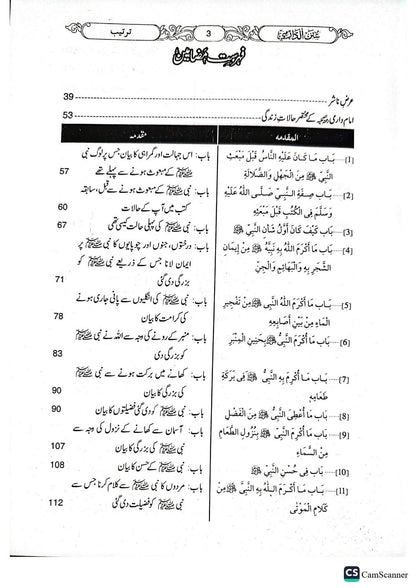 سنن الدارمی
3
ترتیب
فہرست مضامین
عرض ناشر 39
امام دارمی رحمۃ اللہ علیہ کے مختصر حالات زندگی 53
المقدمه
مقدمہ
[1] بَاب مَا كَانَ عَلَيْهِ النَّاسُ قَبْلَ مَبْعَثِ
النَّبِيِّ ﷺ مِنَ الْجَهْلِ وَالضَّلَالَةِ
باب: اس جہالت اور گمراہی کا بیان جس پر لوگ نبی
ﷺ کے مبعوث ہونے سے پہلے تھے 57
[2] بَاب صِفَةِ النَّبِيِّ صَلَّى اللَّهُ عَلَيْهِ
وَسَلَّمَ فِي الْكُتُبِ قَبْلَ مَبْعَثِهِ
باب: نبی ﷺ کے مبعوث ہونے سے قبل، سابقہ
کتب میں آپ کے حالات 60
[3] بَاب كَيْفَ كَانَ أَوَّلُ شَأْنِ النَّبِيِّ ﷺ
باب: نبی ﷺ کی پہلی حالت کیسی تھی 67
[4] بَاب مَا أَكْرَمَ اللَّهُ بِهِ نَبِيَّهُ ﷺ مِنْ إِيمَانِ
الشَّجَرِ بِهِ وَالْبَهَائِمِ وَالْجِنِّ
باب: درختوں، جنوں اور چوپایوں کا نبی ﷺ پر
ایمان لانا جس کے ذریعے نبی ﷺ کو
بزرگی دی گئی 71
[5] بَاب مَا أَكْرَمَ اللَّهُ النَّبِيَّ ﷺ مِنْ تَفْجِيرِ
الْمَاءِ مِنْ بَيْنِ أَصَابِعِهِ
باب: نبی ﷺ کی انگلیوں سے پانی جاری ہونے
کی کرامت کا بیان 78
[6] بَاب مَا أُكْرِمَ النَّبِيُّ ﷺ بِحَنِينِ الْمِنْبَرِ
باب: منبر کے رونے کی وجہ سے اللہ نے نبی ﷺ
کو بزرگی دی 83
[7] بَاب مَا أُكْرِمَ بِهِ النَّبِيُّ ﷺ فِي بَرَكَةِ
طَعَامِهِ
باب: کھانے میں برکت ہونے سے نبی ﷺ
کی بزرگی کا بیان 90
[8] بَاب مَا أُعْطِيَ النَّبِيُّ ﷺ مِنَ الْفَضْلِ
باب: نبی ﷺ کو دی گئی فضیلتوں کا بیان 90
[9] بَاب مَا أُكْرِمَ النَّبِيُّ ﷺ بِنُزُولِ الطَّعَامِ
مِنَ السَّمَاءِ
باب: آسمان سے کھانے کے نزول کی وجہ سے
نبی ﷺ کی بزرگی کا بیان 107
[10] بَاب فِي حُسْنِ النَّبِيِّ ﷺ
باب: نبی ﷺ کے حسن کا بیان 108
[11] بَاب مَا أَكْرَمَ اللَّهُ بِهِ النَّبِيَّ ﷺ مِنْ
كَلَامِ الْمَوْتَى
باب: مردوں کا نبی ﷺ سے کلام کرنا جس سے
نبی ﷺ کو فضیلت دی گئی 112
CS CamScanner